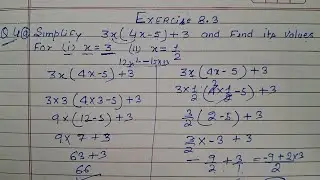 EXERCISE 8.3
Q.4(a) Simplify 3x(4x-5)+3 and find its values
for (i) x=3 (ii) x=1/2
12x²-15x+3
3x(4x-5)+3
3×3(4×3-5)+3
9×(12-5)+3
9×7+3
63+3
66
3x(4x-5)+3
3×1/2(4×1/2-5)+3
3/2(2-5)+3
3/2×-3+3
-9/2+3/1=-9+2×3/2